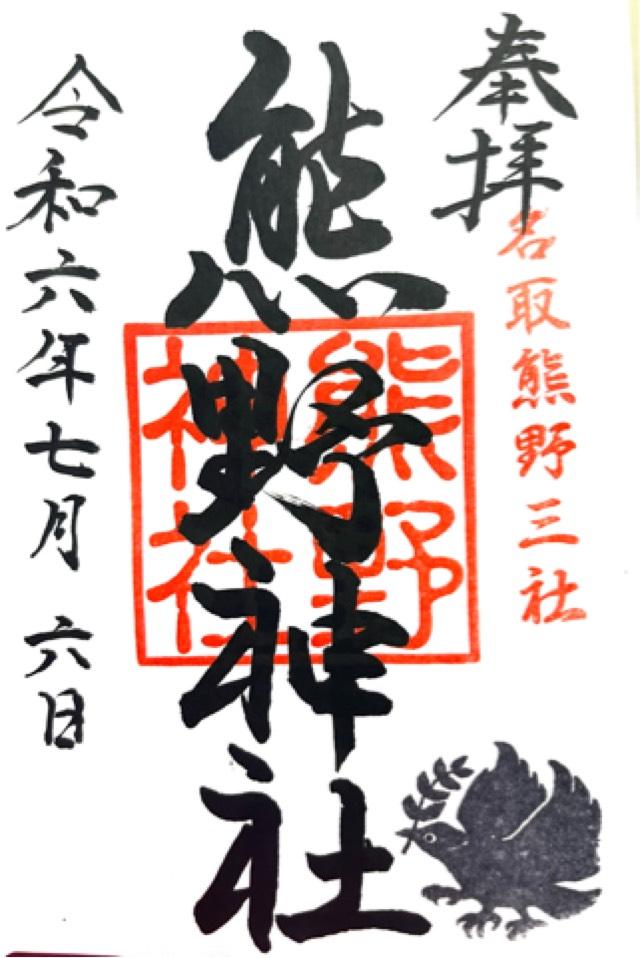 奉拝
名取熊野三社
熊野神社
熊野
神社
令和六年七月 六日